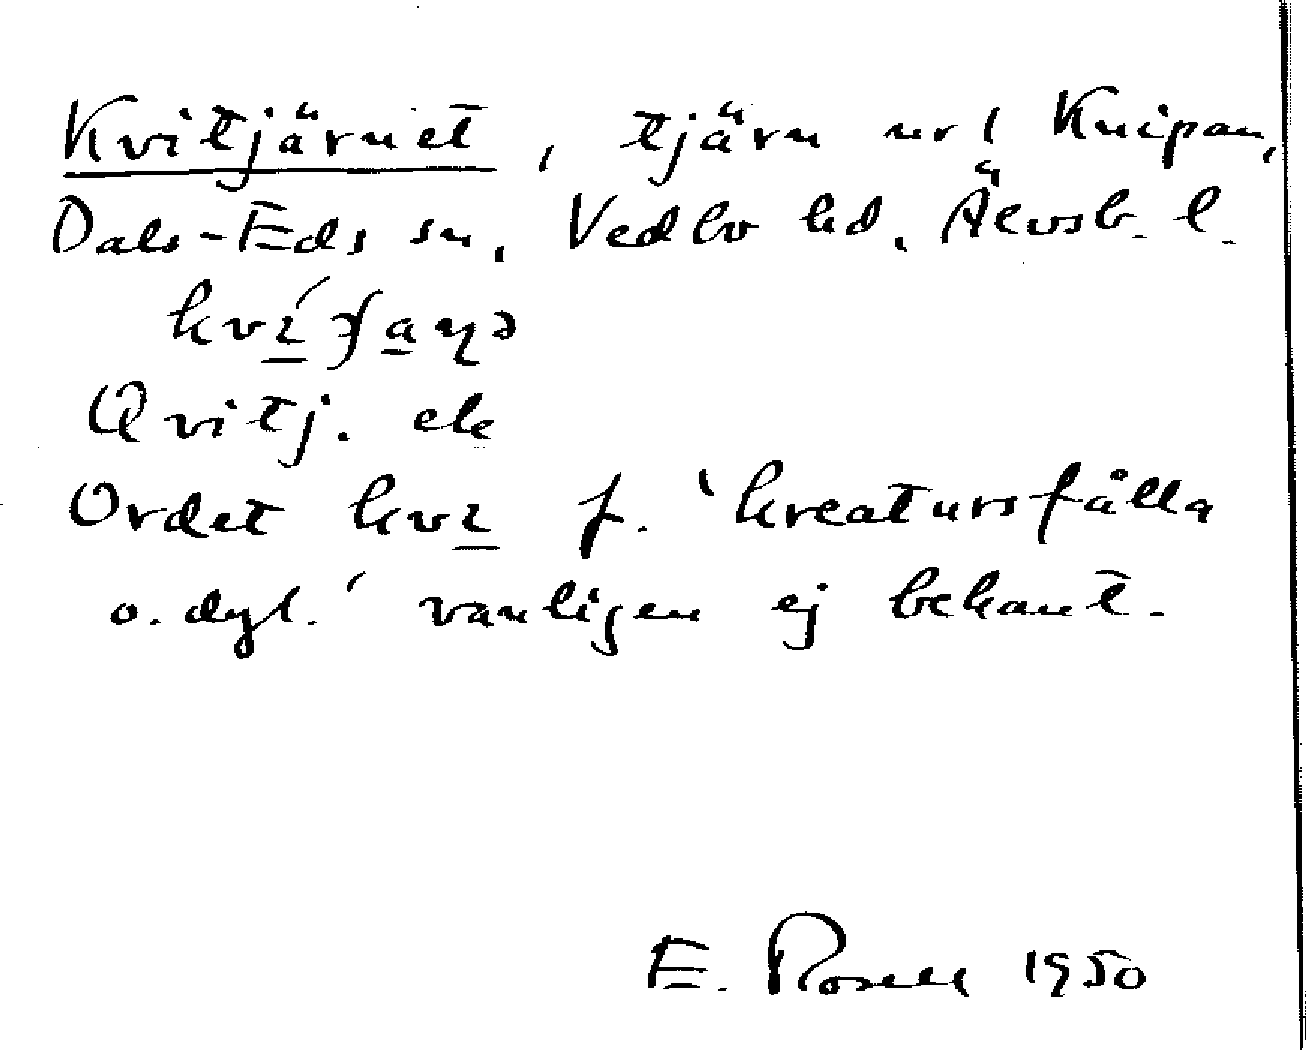 Kvitjärnet, tjärn nr 1 Knipan,
Dals-Eds sn, Vedbo hd, Älvsb. l.
Qvitj. ek
Ordet kvɪ f. 'kreatursfålla
o. dyl.' vanligen ej bekant.
E. Rosell 1950